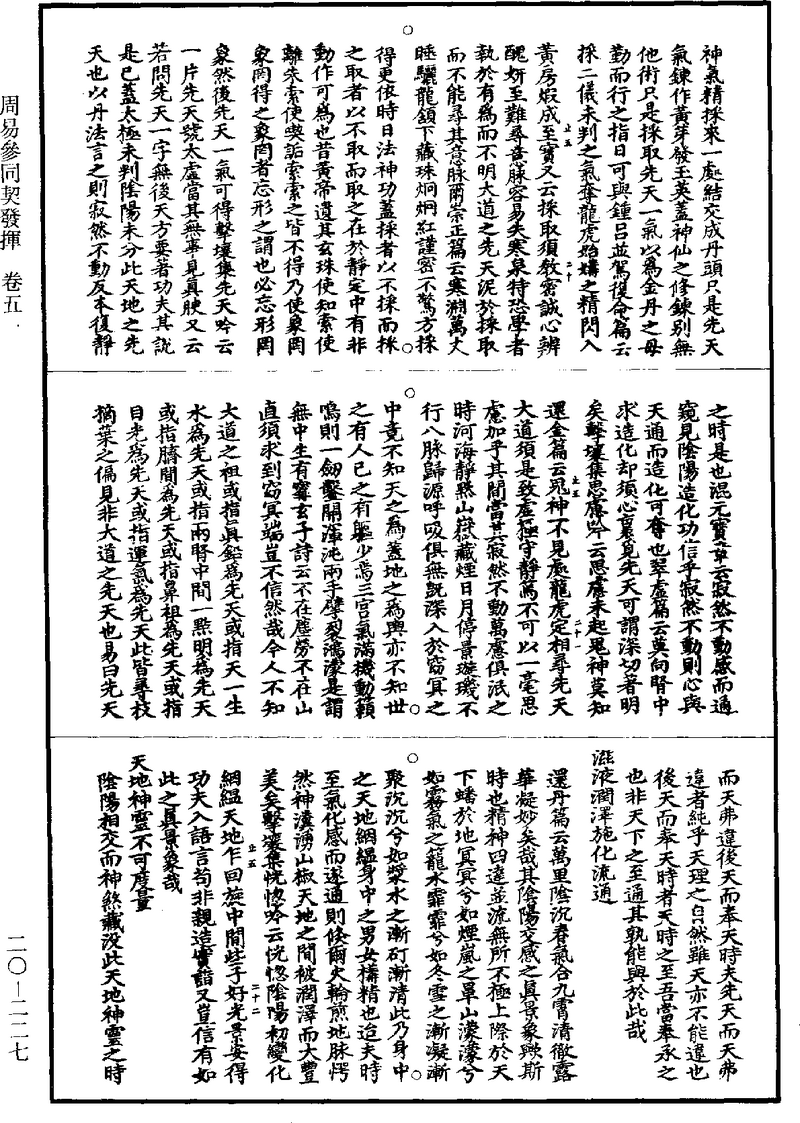 周易參同契發揮　卷五
二〇—二二七
神氣精採來一處結交成丹頭只是先天
氣鍊作黃芽發玉英蓋神仙之修鍊別無
他術只是採取先天一氣以為金丹之母
勤而行之指日可與鍾呂並駕復命篇云
採二儀未判之氣奪龍虎始媾之精閃入
黃房煆成至寶又云採取須教密誠心辨
醜妍至難尋意脉容易失寒泉特恐學者
執於有為而不明大道之先天泥於採取
而不能尋其意脉爾崇正篇云寒淵萬丈
睡驪龍頷下藏珠炯炯紅謹密不驚方採
得更依時日法神功蓋採者以不採而採
之取者以不取而取之在於靜定中有非
動作可為也昔黃帝遺其玄珠使知索使
離朱索使喫詬索索之皆不得乃使象罔
象罔得之象罔者忘形之謂也必忘形罔
象然後先天一氣可得擊壤集先天吟云
一片先天號太虛當其無事見真腴又云
若問先天一字無後天方要著功夫其說
是已蓋太極未判陰陽未分此天地之先
天也以丹法言之則寂然不動反本復靜
之時是也混元寶章云寂然不動感而通
窺見陰陽造化功信乎寂然不動則心與
天通而造化可奪也翠虛篇云莫向腎中
求造化却須心裏覓先天可謂深切著明
矣擊壤集思慮吟云思慮未起鬼神莫知
還金篇云鬼神不見處龍虎定相尋先天
大道須是致虛極守靜篤不可以一毫思
慮加乎其間當其寂然不動萬慮俱泯之
時河海靜默山嶽藏煙日月停景璇璣不
行八脉歸源呼吸俱無既深入於窈冥之
中竟不知天之為蓋地之為輿亦不知世
之有人已之有軀少焉三宮氣滿機動籟
鳴則一劒鑿開渾沌兩手擘裂鴻濛是謂
無中生有窮玄子詩云不在塵勞不在山
直須求到窈冥端豈不信然哉今人不知
大道之祖或指真鉛為先天或指天一生
水為先天或指兩腎中間一點明為先天
或指臍間為先天或指鼻祖為先天或指
目光為先天或指運氣為先天此皆尋枝
摘葉之偏見非大道之先天也易曰先天
而天弗違後天而奉天時夫先天而天弗
違者純乎天理之自然雖天亦不能違也
後天而奉天時者天時之至吾當奉承之
也非天下之至通其孰能與於此哉
滋液潤澤施化流通
還丹篇云萬里陰沉春氣合九霄清徹露
華凝妙矣哉其陰陽交感之真景象歟斯
時也精神四達並流無所不極上際於天
下蟠於地冥冥兮如煙嵐之罩山濛濛兮
如霧氣之籠水霏霏兮如冬雪之漸凝漸
聚沉沉兮如漿水之漸矴漸清此乃身中
之天地絪縕身中之男女構精也迨夫時
至氣化感而遂通則倐爾火輪煎地脉愕
然神瀵湧山椒天地之間被潤澤而大豐
美矣擊壤集恍惚吟云恍惚陰陽初變化
絪縕天地乍回旋中間些子好光景安得
功夫入語言苟非親造實詣又豈信有如
此之真景象哉
天地神靈不可度量
陰陽相交而神煞藏没此天地神靈之時